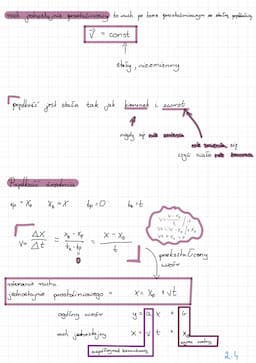 ruch jednostajnie prostoliniowy to ruch po torze prostoliniowym ze stałą prędkością
V = const
stały, niezmienny
prędkość jest stała tak jak kierunek i zwrot
nigdy się nie zmienia
nie zmienia się
czyli ciało nie
Prędkość średnia
x₀ = X₀ xₖ = X t₀ = 0 tₖ = t
V = ΔX / Δt = (xₖ - x₀) / (tₖ - t₀) = (x - x₀) / t
przekształcony
wzór
równanie ruchu
jednostajnie prostoliniowego = x = x₀ + vt
ogólny wzór y = a x + b
ruch jednostajny x = v t + x₀
współczynnik kierunkowy
wyraz wolny
2.4